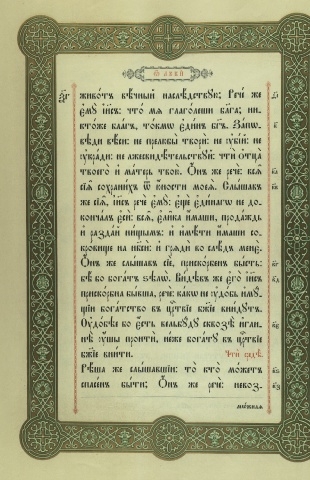 Ѿ лꙋкѝ
живо́тъ вѣ́чный наслѣ́дствꙋю; Рече́ же
є҆мꙋ̀ і҆и҃съ: что́ мѧ глаго́леши бл҃га; ни-
кто́же бла́гъ, то́кмѡ є҆ди́нъ бг҃ъ. За́пѡ-
вѣди вѣ́си: не прелю́бы твори̑: не ᲂу҆бі́й: не
ᲂу҆кра́ди: не лжесвидѣ́тельствꙋй: чтѝ ѻ҆тца̀
твоего̀ и҆ ма́терь твою̀. Ѻ҆́нъ же речѐ: всѧ̑
сїѧ̑ сохрани́хъ ѿ ю҆́ности моеѧ̀. Слы́шавъ
же сїѧ̑, і҆и҃съ речѐ є҆мꙋ̀: є҆щѐ є҆ди́нагѡ не до-
конча́лъ є҆сѝ: всѧ̑, є҆ли̑ка и҆́маши, прода́ждь
и҆ разда́й ни́щымъ: и҆ и҆мѣ́ти и҆́маши со-
кро́вище на нб҃сѝ: и҆ грѧдѝ во слѣ́дъ менє̀.
Ѻ҆́нъ же слы́шавъ сїѐ, приско́рбенъ бы́сть:
бѣ́ бо бога́тъ ѕѣлѡ̀. Ви́дѣвъ же є҆го̀ і҆и҃съ
приско́рбна бы́вша, речѐ: ка́кѡ не ᲂу҆до́бь и҆мꙋ́-
щїи бога́тство въ црⷭ҇твїе бж҃їе вни́дꙋтъ.
Оу҆до́бѣе бо є҆́сть вельбꙋ́дꙋ сквозѣ̀ и҆гли-
нѣ̑ ᲂу҆́шы проитѝ, не́же бога́тꙋ въ црⷭ҇твїе
бж҃їе вни́ти. Чтѝ сре́дѣ.
Рѣ́ша же слы́шавшїи: то̀ кто̀ мо́жетъ
спасе́нъ бы́ти; Ѻ҆́нъ же речѐ: невоз-
мѡ́жнаѧ